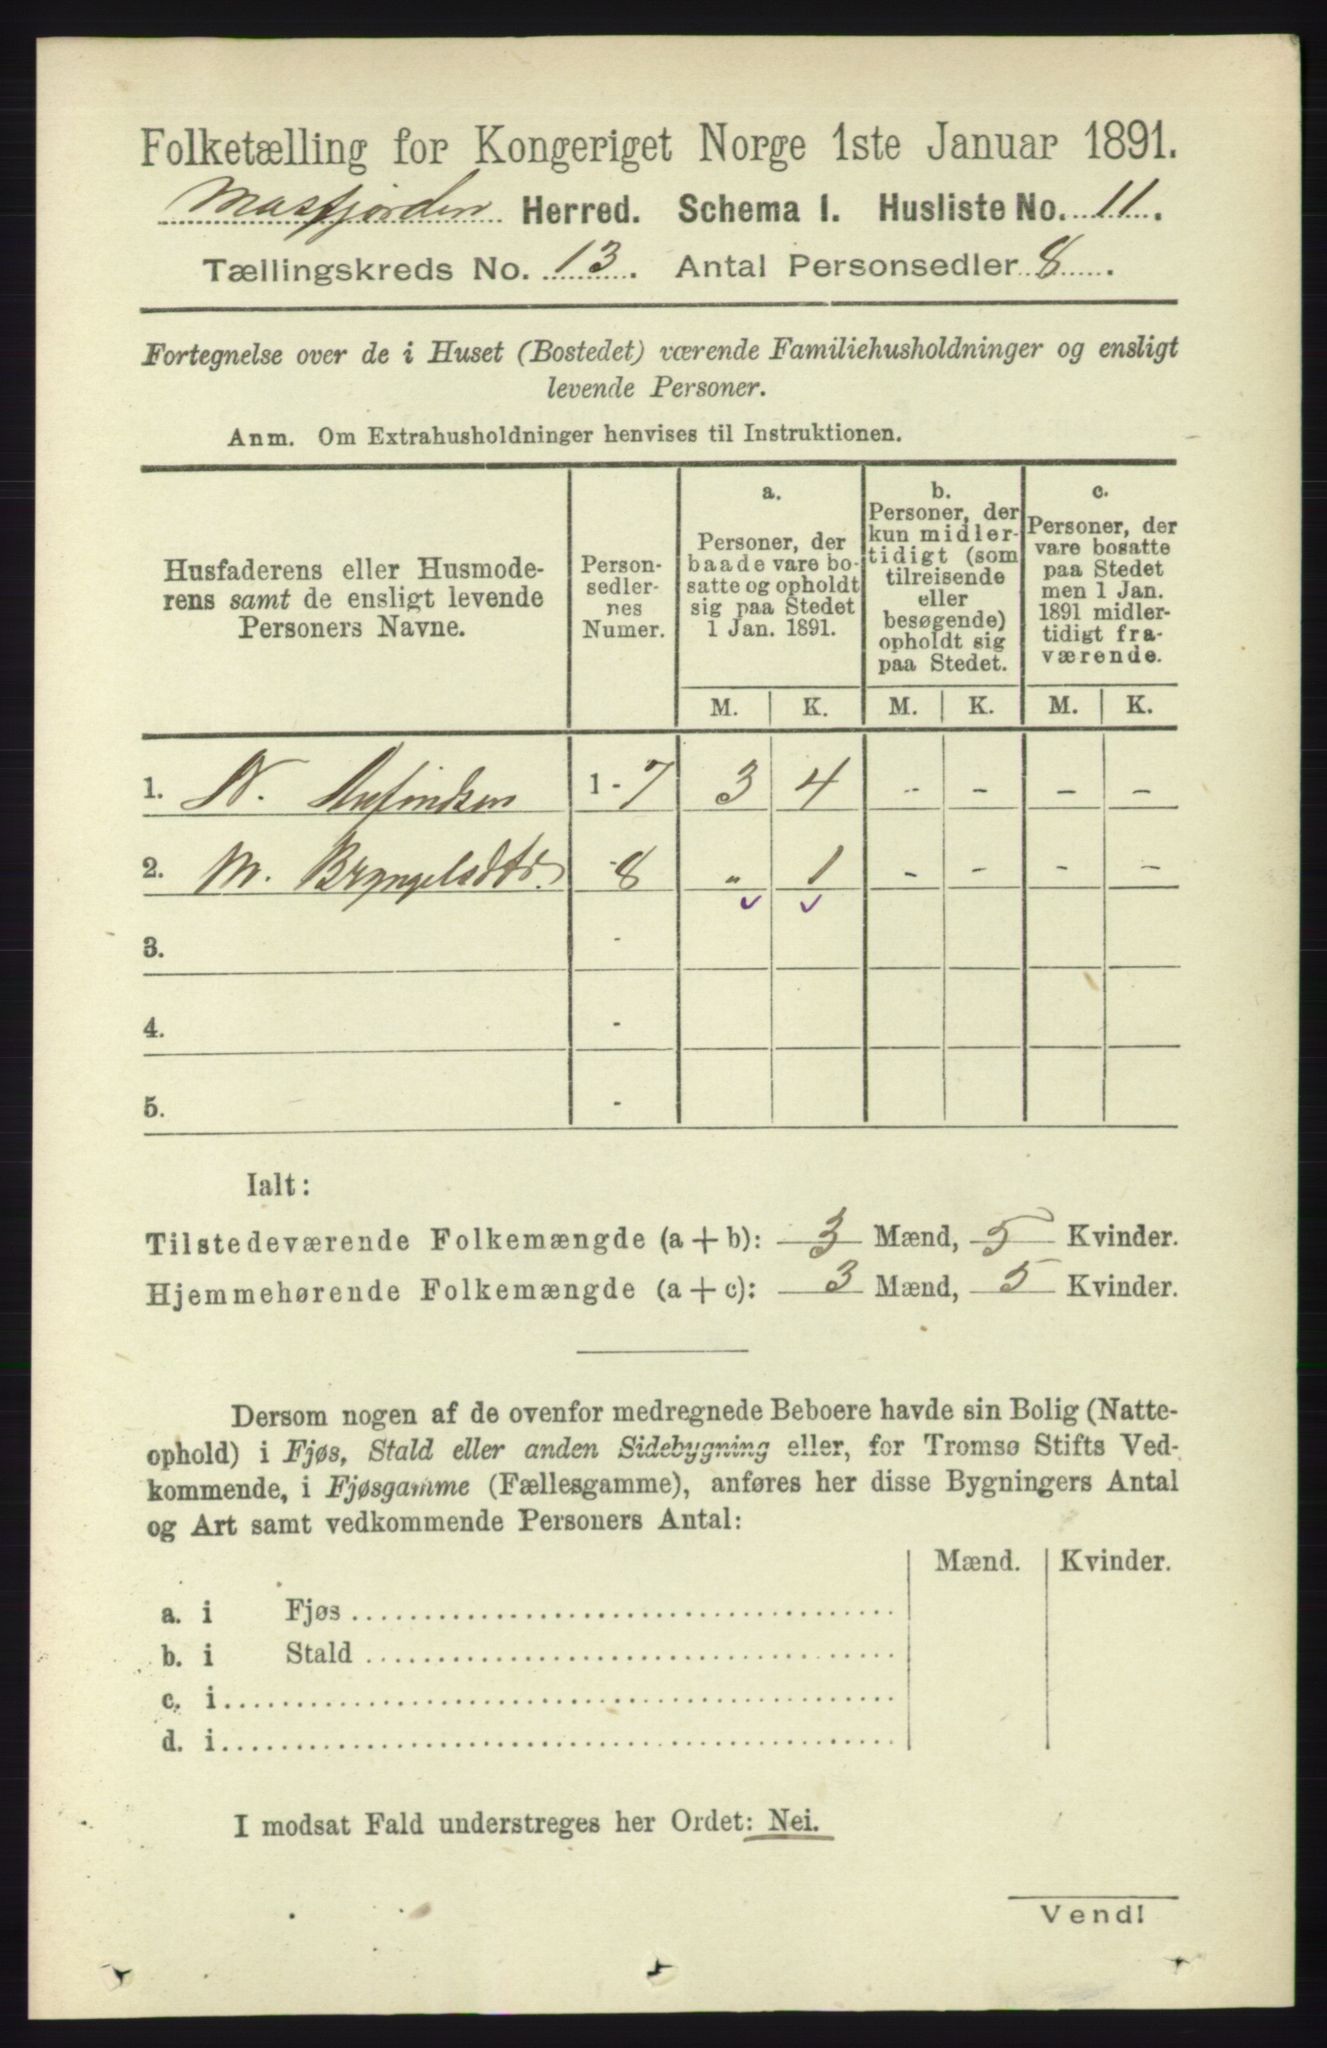 Folketælling for Kongeriget Norge 1ste Januar 1891.
Masfjorden Herred. Schema I. Husliste No. 11.
Tællingskreds No. 13. Antal Personsedler 8.
Fortegnelse over de i Huset (Bostedet) værende Familiehusholdninger og ensligt
levende Personer.
Anm. Om Extrahusholdninger henvises til Instruktionen.
Husfaderens eller Husmode-
rens samt de ensligt levende
Personers Navne.
Person-
sedler-
nes
Numer.
a.
Personer, der
baade vare bo-
satte og opholdt
sig paa Stedet
1 Jan. 1891.
b.
Personer, der
kun midler-
tidigt (som
tilreisende
eller
besøgende)
opholdt sig
paa Stedet.
c.
Personer, der
vare bosatte
paa Stedet
men 1 Jan.
1891 midler-
tidigt fra-
værende.
M. K. M. K. M. K.
1. N. Anfindsen 1-7 3 4 - - - -
2. M. Bryngelsdtr. -8 „ 1 - - - -
3. -
4. -
5. -
Ialt:
Tilstedeværende Folkemængde (a + b): 3 Mænd, 5 Kvinder.
Hjemmehørende Folkemængde (a + c): 3 Mænd, 5 Kvinder.
Dersom nogen af de ovenfor medregnede Beboere havde sin Bolig (Natte-
ophold) i Fjøs, Stald eller anden Sidebygning eller, for Tromsø Stifts Ved-
kommende, i Fjøsgamme (Fællesgamme), anføres her disse Bygningers Antal
og Art samt vedkommende Personers Antal:
Mænd. Kvinder.
a. i Fjøs
b. i Stald
c. i
d. i
I modsat Fald understreges her Ordet: Nei.
Vend!